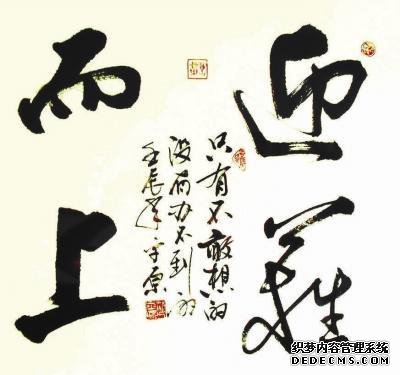 迎難
而上
只有不敢想的
没有办不到的
壬辰年
织梦内容管理系统
DEDECMS.COM